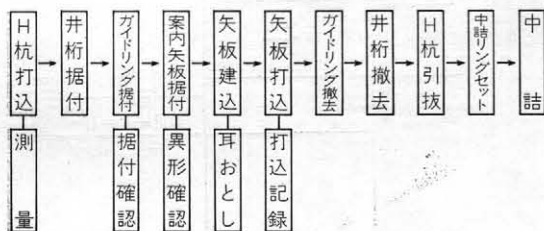 H杭打込
井桁据付
ガイドリング据付
案内矢板据付
矢板建込
矢板打込
ガイドリング撤去
井桁撤去
H杭引抜
中詰リングセット
中詰
測量
据付確認
異形確認
耳おとし
打込記録